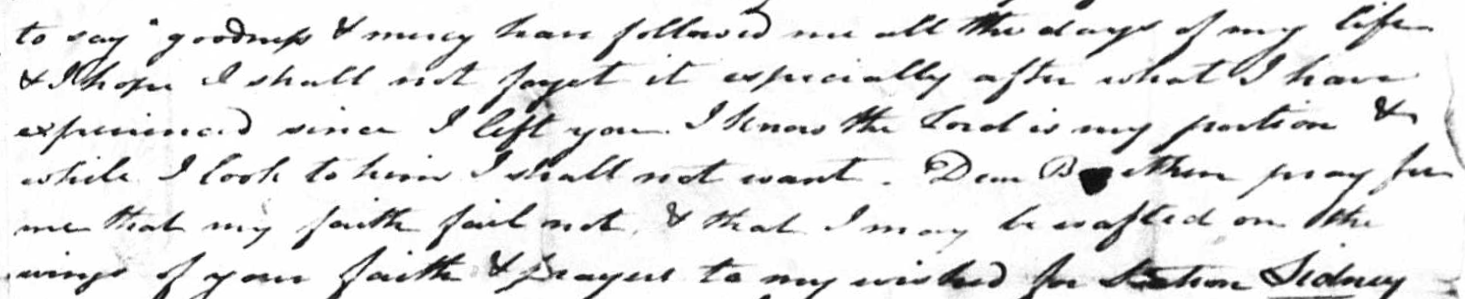 to say "goodness & mercy have followed me all the days of my life
& I hope I shall not forget it especially after what I have
experienced since I left you. I know the Lord is my portion &
while I look to him I shall not want. Dear Brethren pray for
me that my faith fail not, & that I may be wafted on the
wings of your faith & prayers to my wished for Station Sidney